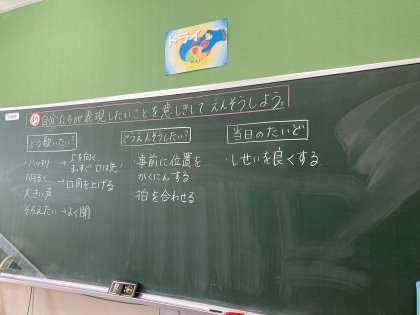 トライ
め 自分たちが表現したいことを意しきしてえんそうしよう。
どう歌いたい?
・ハッキリ → 上を向く
明るく → 口角を上げる
大きい声
そろえたい → よく聞
どうえんそうしたい?
・事前に位置を
かくにんする
・拍を合わせる
当日のたいど
・しせいを良くする。